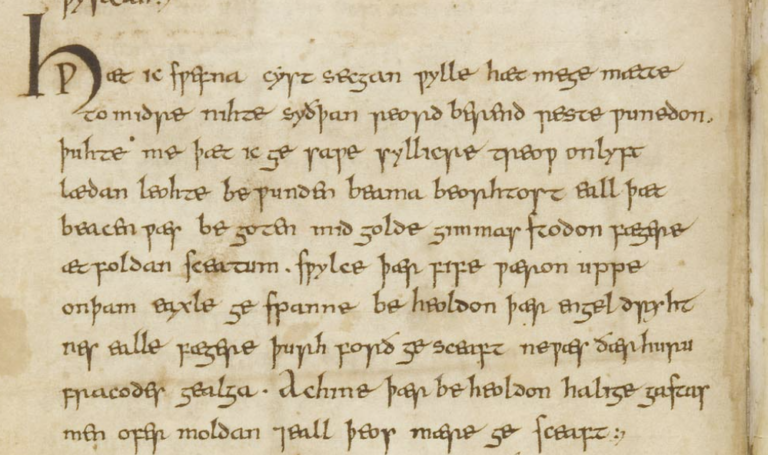 Hƿæt ic sƿefna cyst secgan ƿylle hæt mege mætte
to midre nihte syðþan reord berend reste ƿunedon.
þuhte me þæt ic ge saƿe syllicre treoƿ onlyft
lædan leohte be ƿunden beama beorhtost eall þæt
beacen ƿæs be goten mid golde gimmas stodon fægere
æt foldan sceatum. sƿylce þær fife ƿæron uppe
onþam eaxle ge spanne be heoldon þær engel dryht
nes ealle fægere þurh forð ge sceaft ne ƿæs ðær huru
fracodes gealga. Ac hine þær be heoldon halige gastas
men ofer moldan ⁊ eall þeos mære ge sceaft:,